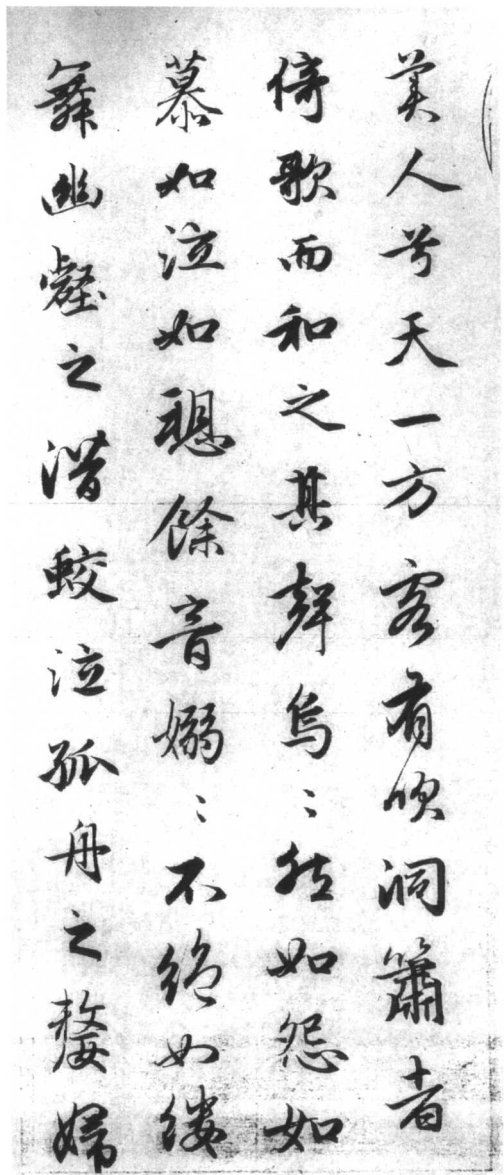 美人兮天一方客有吹洞簫者
倚歌而和之其聲烏〻然如怨如
慕如泣如愬餘音嫋〻不絶如縷
舞幽壑之潛蛟泣孤舟之嫠婦